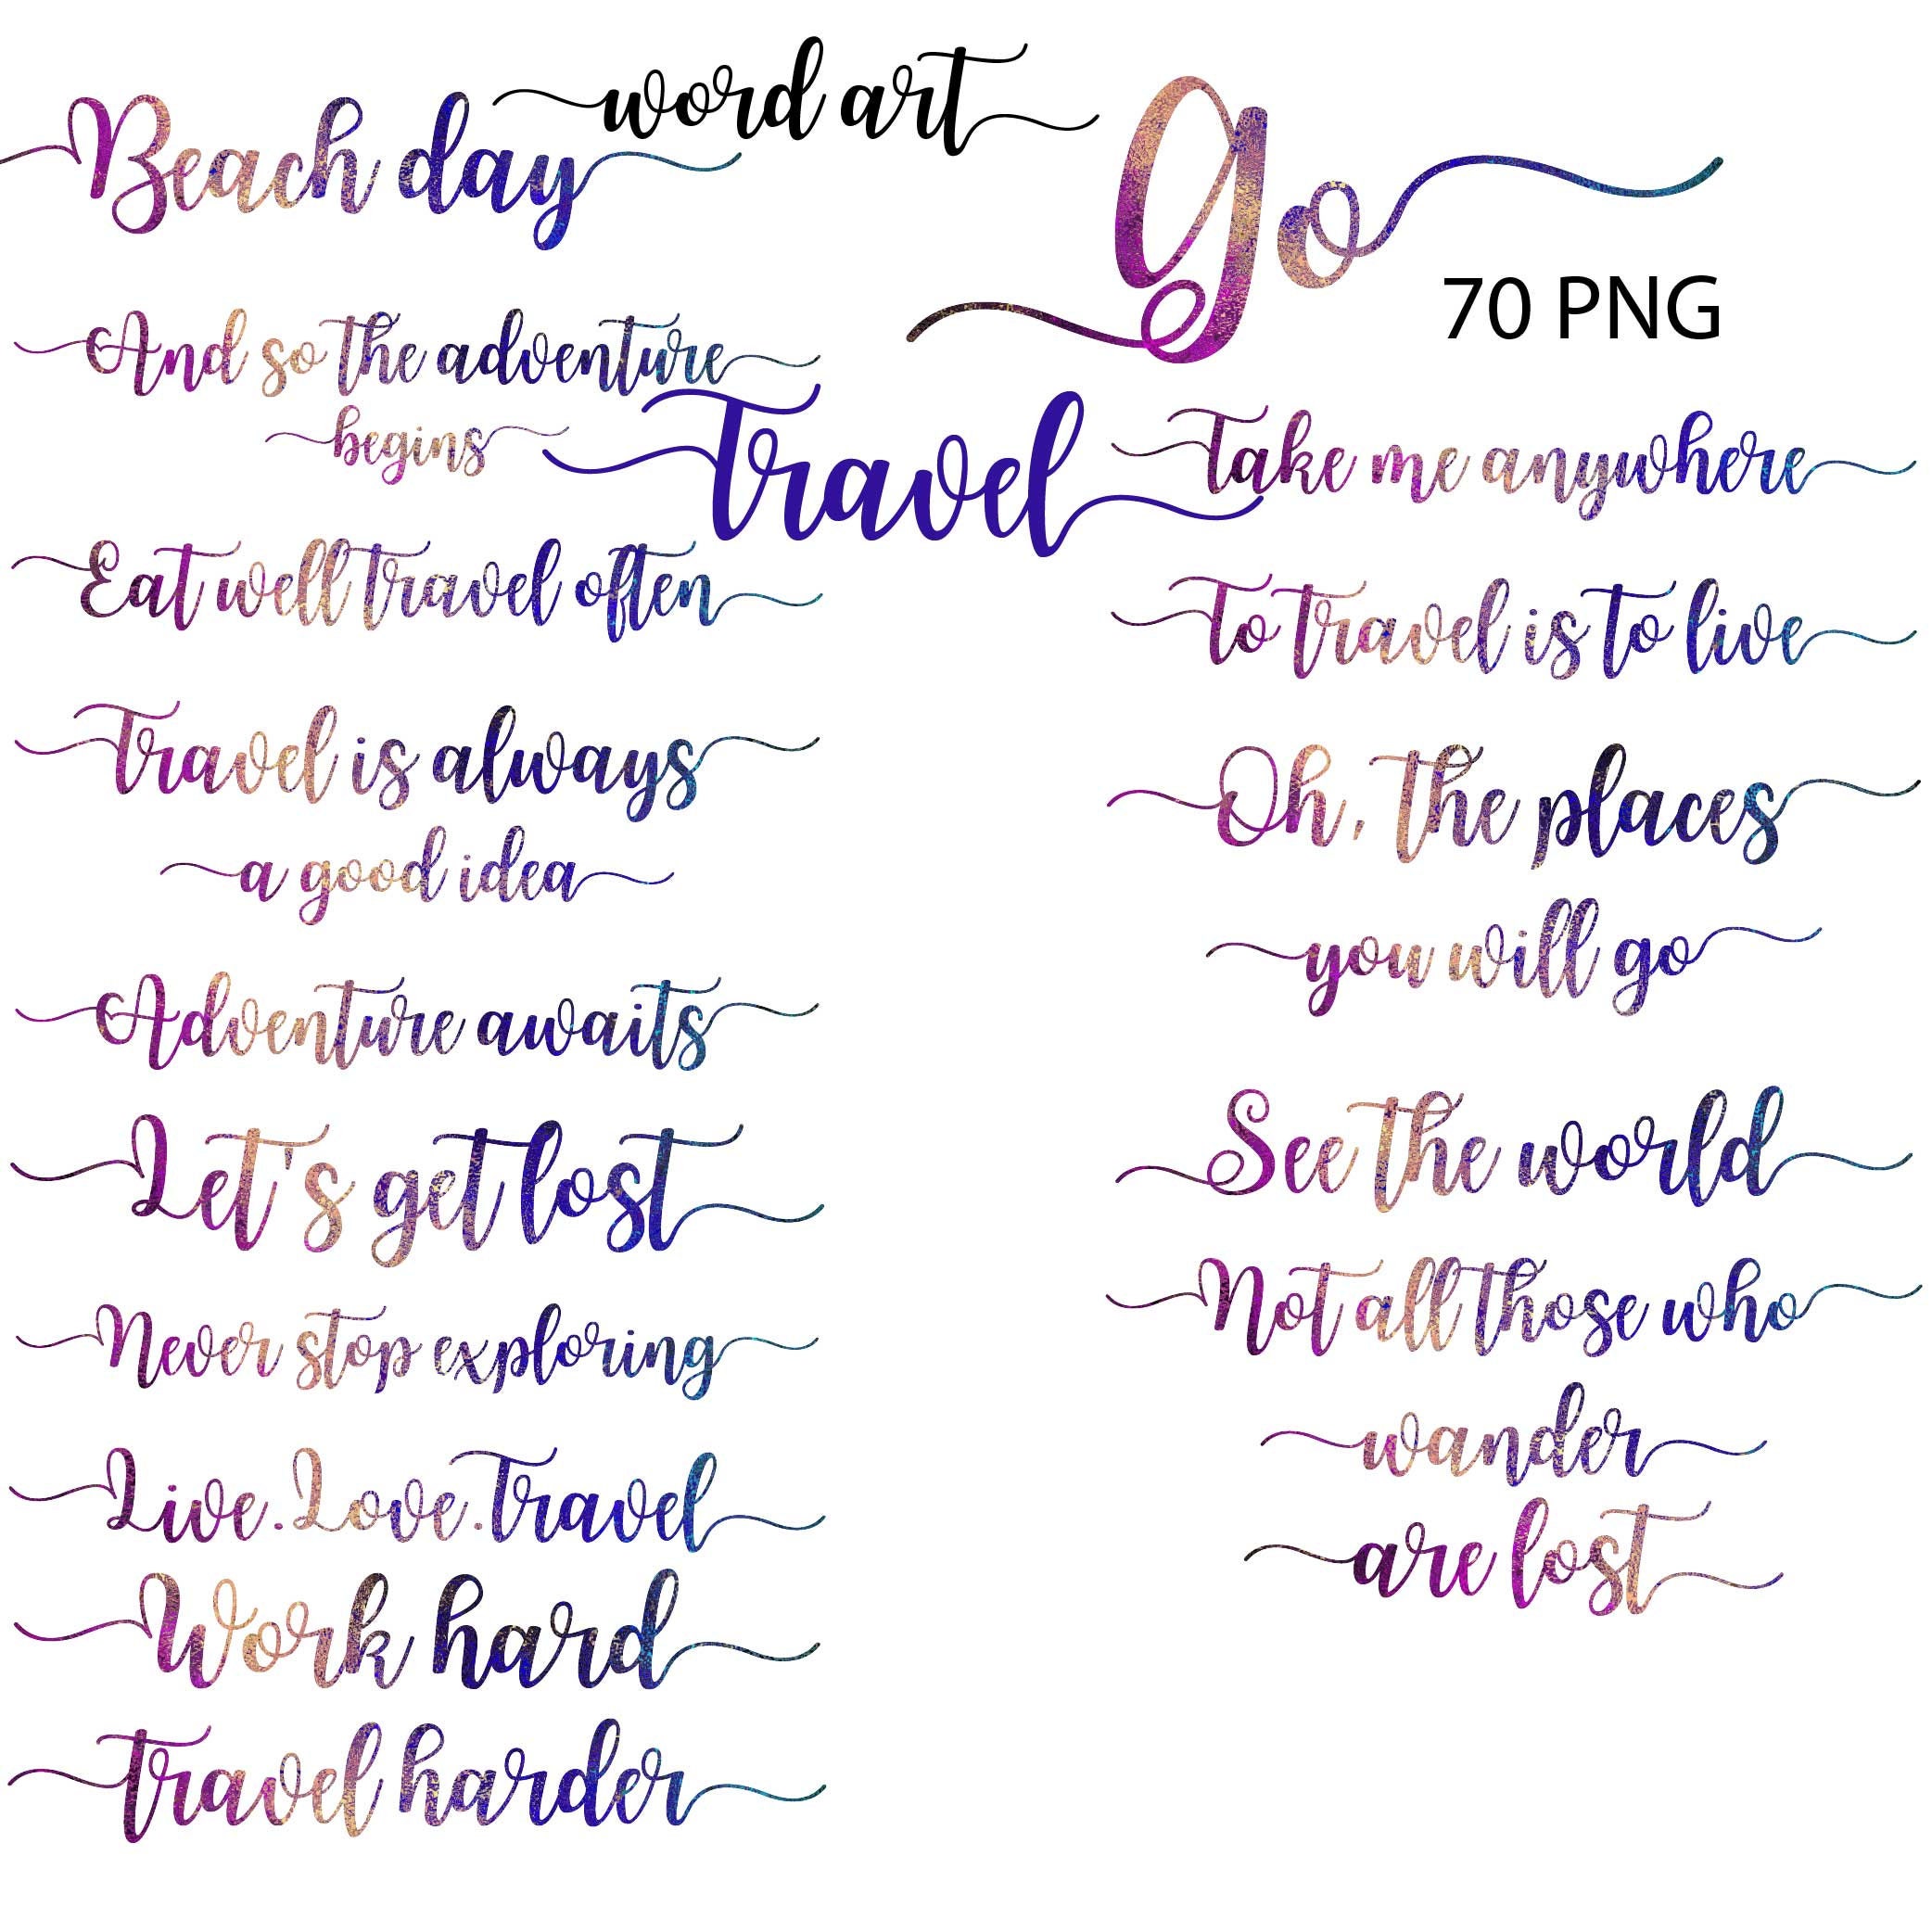 word art
Beach day
go
70 PNG
And so the adventure
begins
Travel
Take me anywhere
Eat well travel often
To travel is to live
Travel is always
a good idea
Oh, the places
you will go
Adventure awaits
Let's get lost
See the world
Never stop exploring
Not all those who
wander
are lost
Live.Love.Travel
Work hard
Travel harder